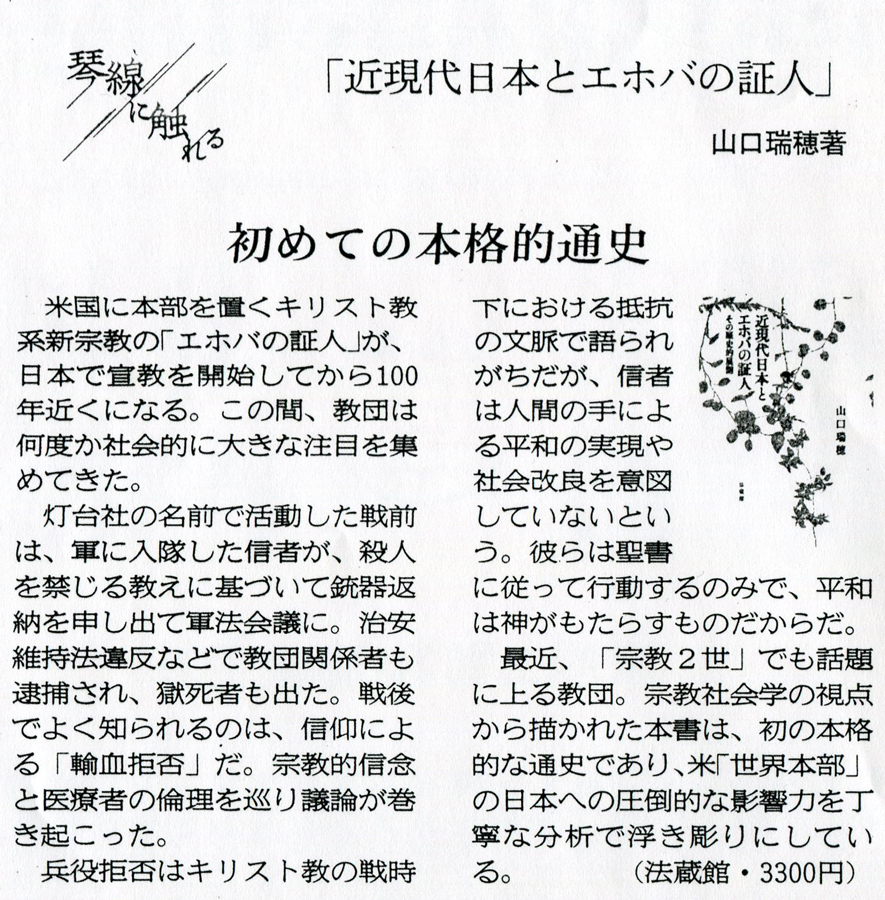 琴線に触れる
「近現代日本とエホバの証人」
山口瑞穂著
初めての本格的通史
　米国に本部を置くキリスト教
系新宗教の「エホバの証人」が、
日本で宣教を開始してから100
年近くになる。この間、教団は
何度か社会的に大きな注目を集
めてきた。
　灯台社の名前で活動した戦前
は、軍に入隊した信者が、殺人
を禁じる教えに基づいて銃器返
納を申し出て軍法会議に。治安
維持法違反などで教団関係者も
逮捕され、獄死者も出た。戦後
でよく知られるのは、信仰によ
る「輸血拒否」だ。宗教的信念
と医療者の倫理を巡り議論が巻
き起こった。
　兵役拒否はキリスト教の戦時
下における抵抗
の文脈で語られ
がちだが、信者
は人間の手によ
る平和の実現や
社会改良を意図
していないとい
う。彼らは聖書
に従って行動するのみで、平和
は神がもたらすものだからだ。
　最近、「宗教２世」でも話題
に上る教団。宗教社会学の視点
から描かれた本書は、初の本格
的な通史であり、米「世界本部」
の日本への圧倒的な影響力を丁
寧な分析で浮き彫りにしてい
る。　（法蔵館・3300円）
近現代日本と
エホバの証人
その歴史的展開
山口瑞穂
法蔵館